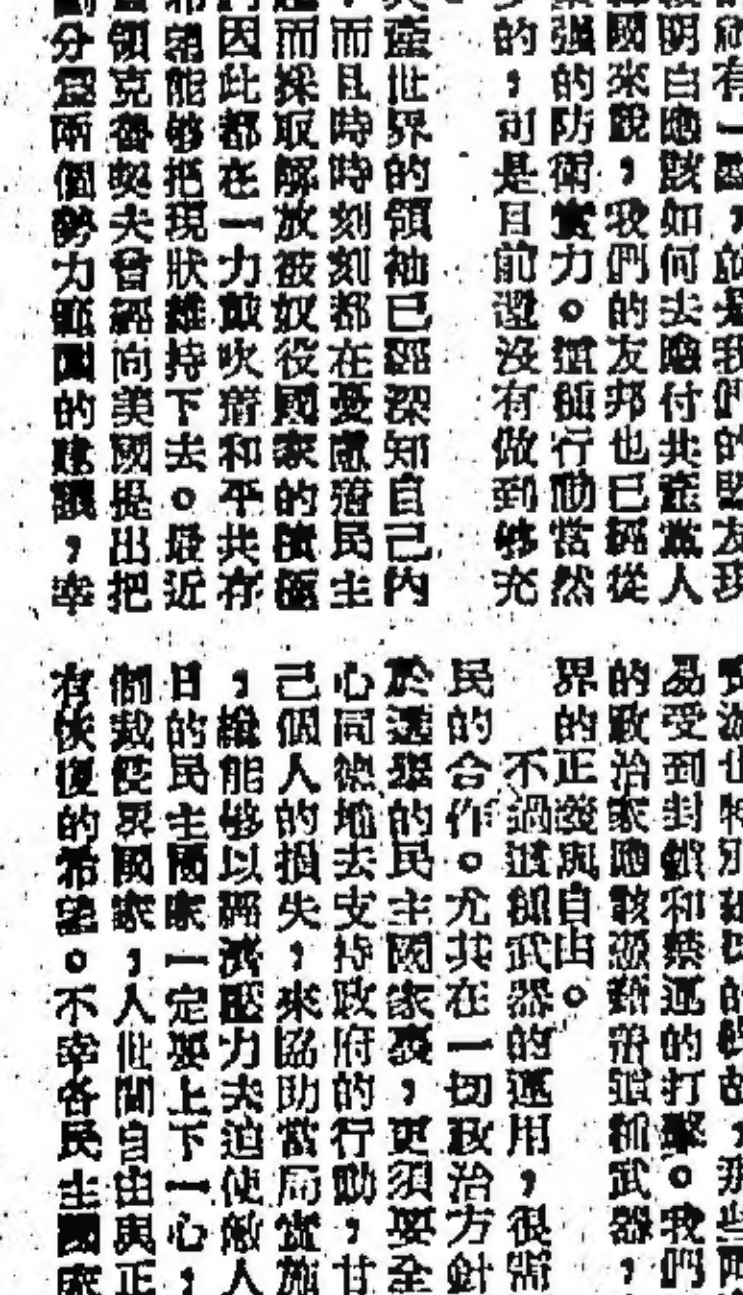 有一點，就是我們的盟友現
明白應該如何去應付共產黨人
國來說，我們的友邦也已經從
強的防衛實力。這種行動當然
的，可是目前還沒有做到够充
產世界的領袖已經深知自己內
而且時時刻刻都在憂慮着民主
而採取解放被奴役國家的積極
因此都在一力鼓吹着和平共存
能够把現狀維持下去。最近
領克魯契夫曾經向美國提出把
分為兩個勢力範圍的建議，幸
也特別，那些
易受到封鎖和禁運的打擊。我們
的政治家應該用這種武器，
界的正義與自由。
不過這種武器的運用，很需
民的合作。尤其在一切政治方針
於選舉的民主國家裏，更須要全
心同德地去支持政府的行動，甘
己個人的損失，來協助當局實施
，纔能够以經濟壓力去迫使敵人
日的民主國家一定要上下一心，
制裁侵略國家，人世間自由與正
有恢復的希望。不幸各民主國家